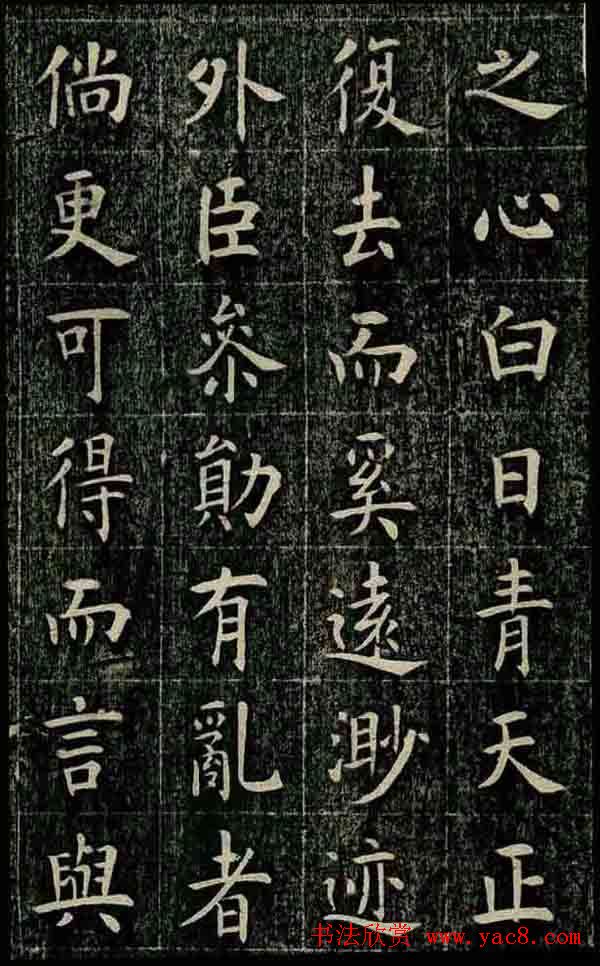 之心白日青天正
復去而奚遠渺迹
外臣叅勛有亂者
倘更可得而言與
书法欣赏 www.yac8.com